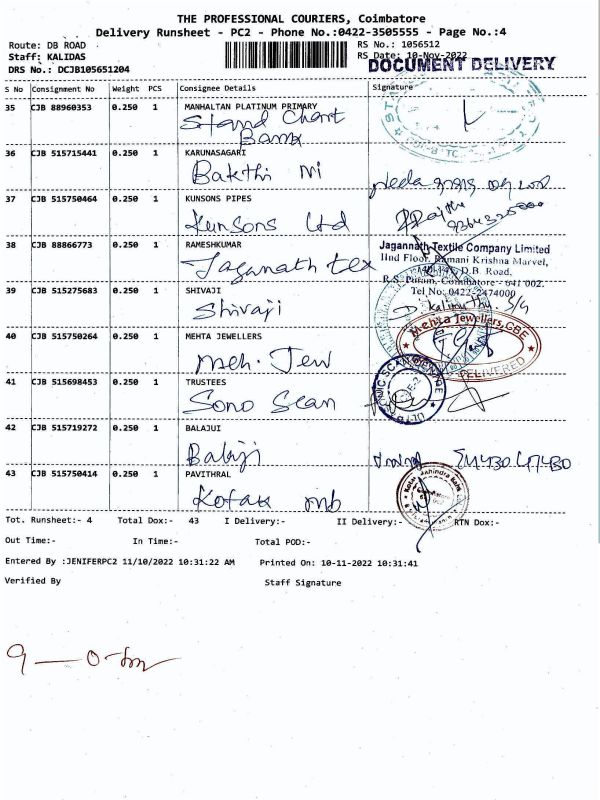 THE PROFESSIONAL COURIERS, Coimbatore
Delivery Runsheet - PC2 - Phone No.:0422-3505555 - Page No.:4
Route: DB ROAD
RS No.: 1056512
Staff: KALIDAS
RS Date: 10-Nov-2022
DOCUMENT DELIVERY
DRS No.: DCJB105651204
S No Consignment No Weight PCS Consignee Details Signature
35 CJB 88960353 0.250 1 MANHALTAN PLATINUM PRIMARY
Stand Chart
Bank
36 CJB 515715441 0.250 1 KARUNASAGARI
Bakthi
37 CJB 515750464 0.250 1 KUNSONS PIPES
Kunsons Ltd
38 CJB 88866773 0.250 1 RAMESHKUMAR
Jaganath tex
Jagannath Textile Company Limited
IInd Floor, Ramani Krishna Marvel,
D.B. Road,
R.S. Puram, Coimbatore - 641 002.
39 CJB 515275683 0.250 1 SHIVAJI
Shivaji
40 CJB 515750264 0.250 1 MEHTA JEWELLERS
Meh. Jew
Mehta Jewellers, CBE
DELIVERED
41 CJB 515698453 0.250 1 TRUSTEES
Sono Scan
42 CJB 515719272 0.250 1 BALAJUI
Balaji
43 CJB 515750414 0.250 1 PAVITHRAL
Kotak mb
Tot. Runsheet:- 4 Total Dox:- 43 I Delivery:- II Delivery:- RTN Dox:-
Out Time:- In Time:- Total POD:-
Entered By :JENIFERPC2 11/10/2022 10:31:22 AM Printed On: 10-11-2022 10:31:41
Verified By Staff Signature